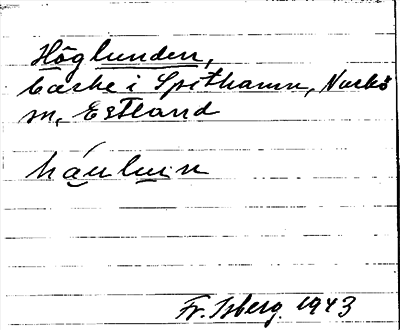 Höglunden,
backe i Spithamn, Nuckö
sn, Estland
háuluın
Fr. Isberg. 1943